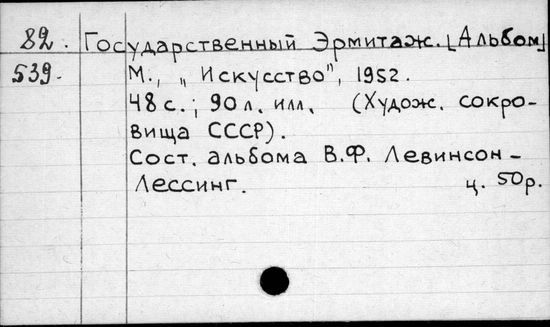 82. Государственный Эрмитаж. [Альбом]
539. М., „Искусство", 1952.
48 с.; 90 л. илл. (Худож. сокро-
вища СССР).
Сост. альбома В.Ф. Левинсон-
Лессинг. ц. 50р.